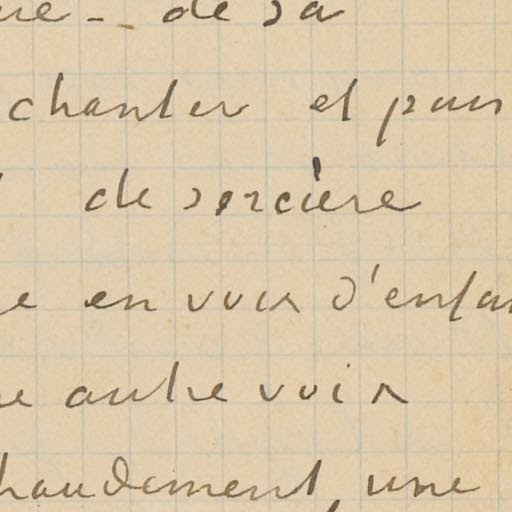 de sa
chanter et puis
de sorcière
en voix d'enfan
autre voix
haudement, une